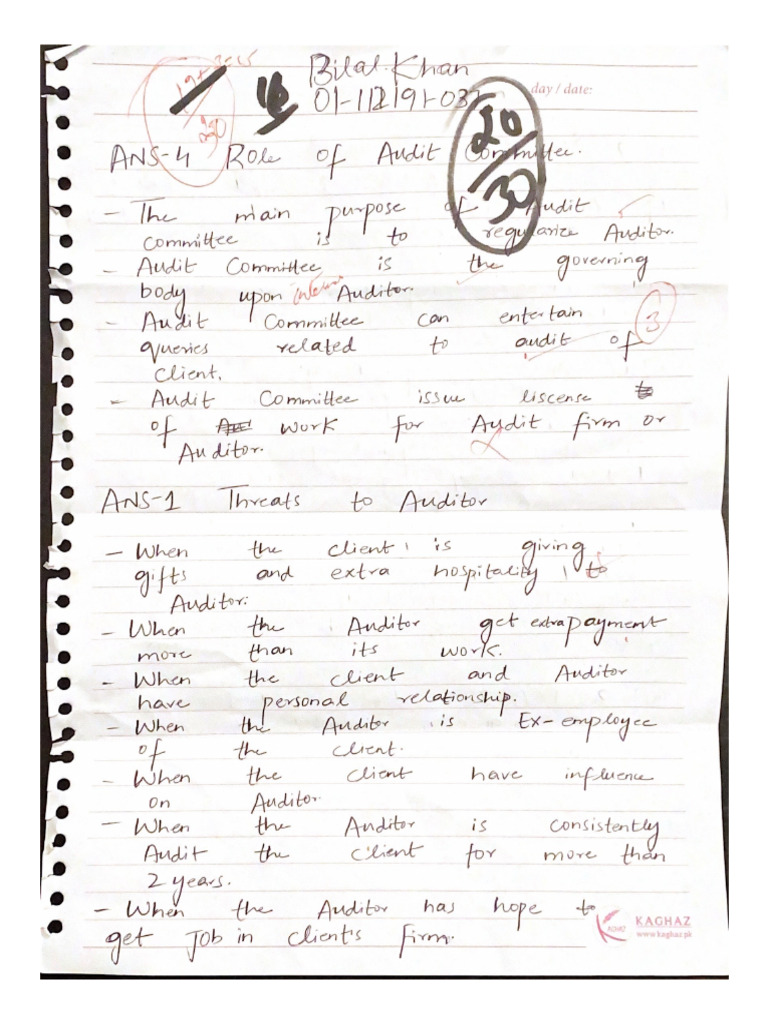 Bilal Khan
day / date:
01-112191-03
20/30
ANS-4 Role of Audit Committee.
- The main purpose of Audit
committee is to regularize Auditor.
- Audit Committee is the governing
body upon Auditor.
- Audit Committee can entertain
3
queries related to audit of
client.
- Audit Committee issue liscense
of work for Audit firm or
Auditor.
ANS-1 Threats to Auditor
- When the client is giving
gifts and extra hospitality to
Auditor.
- When the Auditor get extra payment
more than its work.
- When the client and Auditor
have personal relationship.
- When the Auditor is Ex-employee
of the client.
- When the client have influence
on Auditor.
- When the Auditor is consistently
Audit the client for more than
2 years.
- When the Auditor has hope to
get Job in client's firm.
KAGHAZ
www.kaghaz.pk